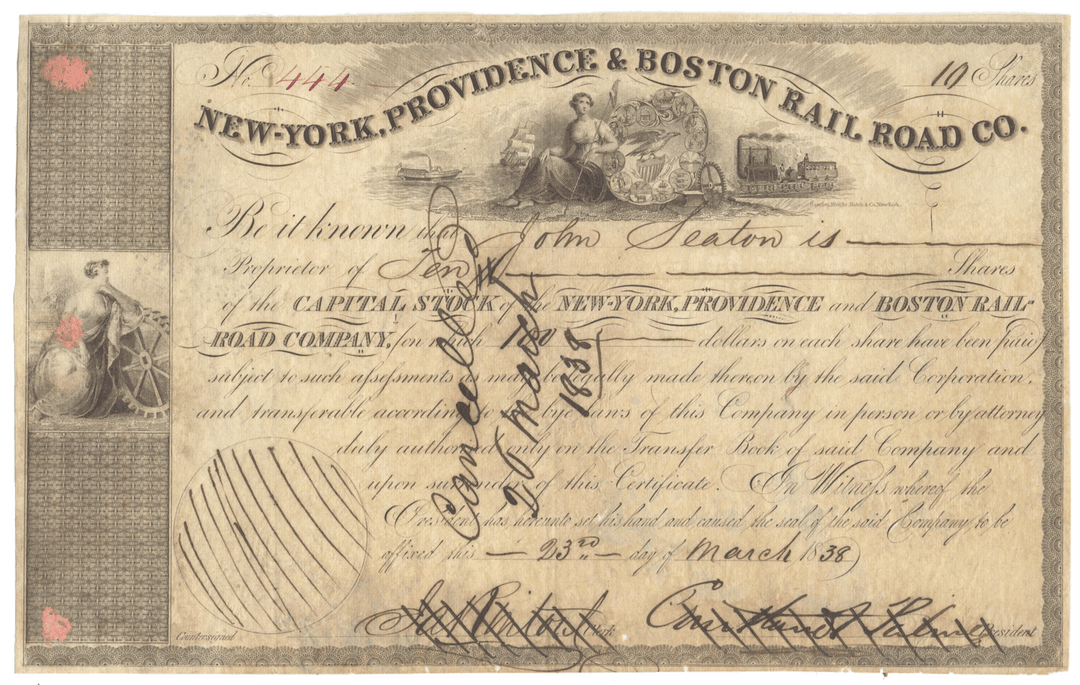 No. 444
10 Shares
NEW-YORK, PROVIDENCE & BOSTON RAIL ROAD CO.
Be it known that John Seaton is
Proprietor of Ten Shares
of the CAPITAL STOCK of the NEW-YORK, PROVIDENCE and BOSTON RAIL-
ROAD COMPANY, on which dollars on each share have been paid
subject to such assessments as may be legally made thereon by the said Corporation,
and transferable according to bye laws of this Company in person or by attorney
duly authored only on the Transfer Book of said Company and
upon surrender of this Certificate. In Witness whereof the
President has hereunto set his hand and caused the seal of the said Company to be
affixed this 23rd day of March 1838
Cancelled
March
1838
Countersigned
Clerk
President